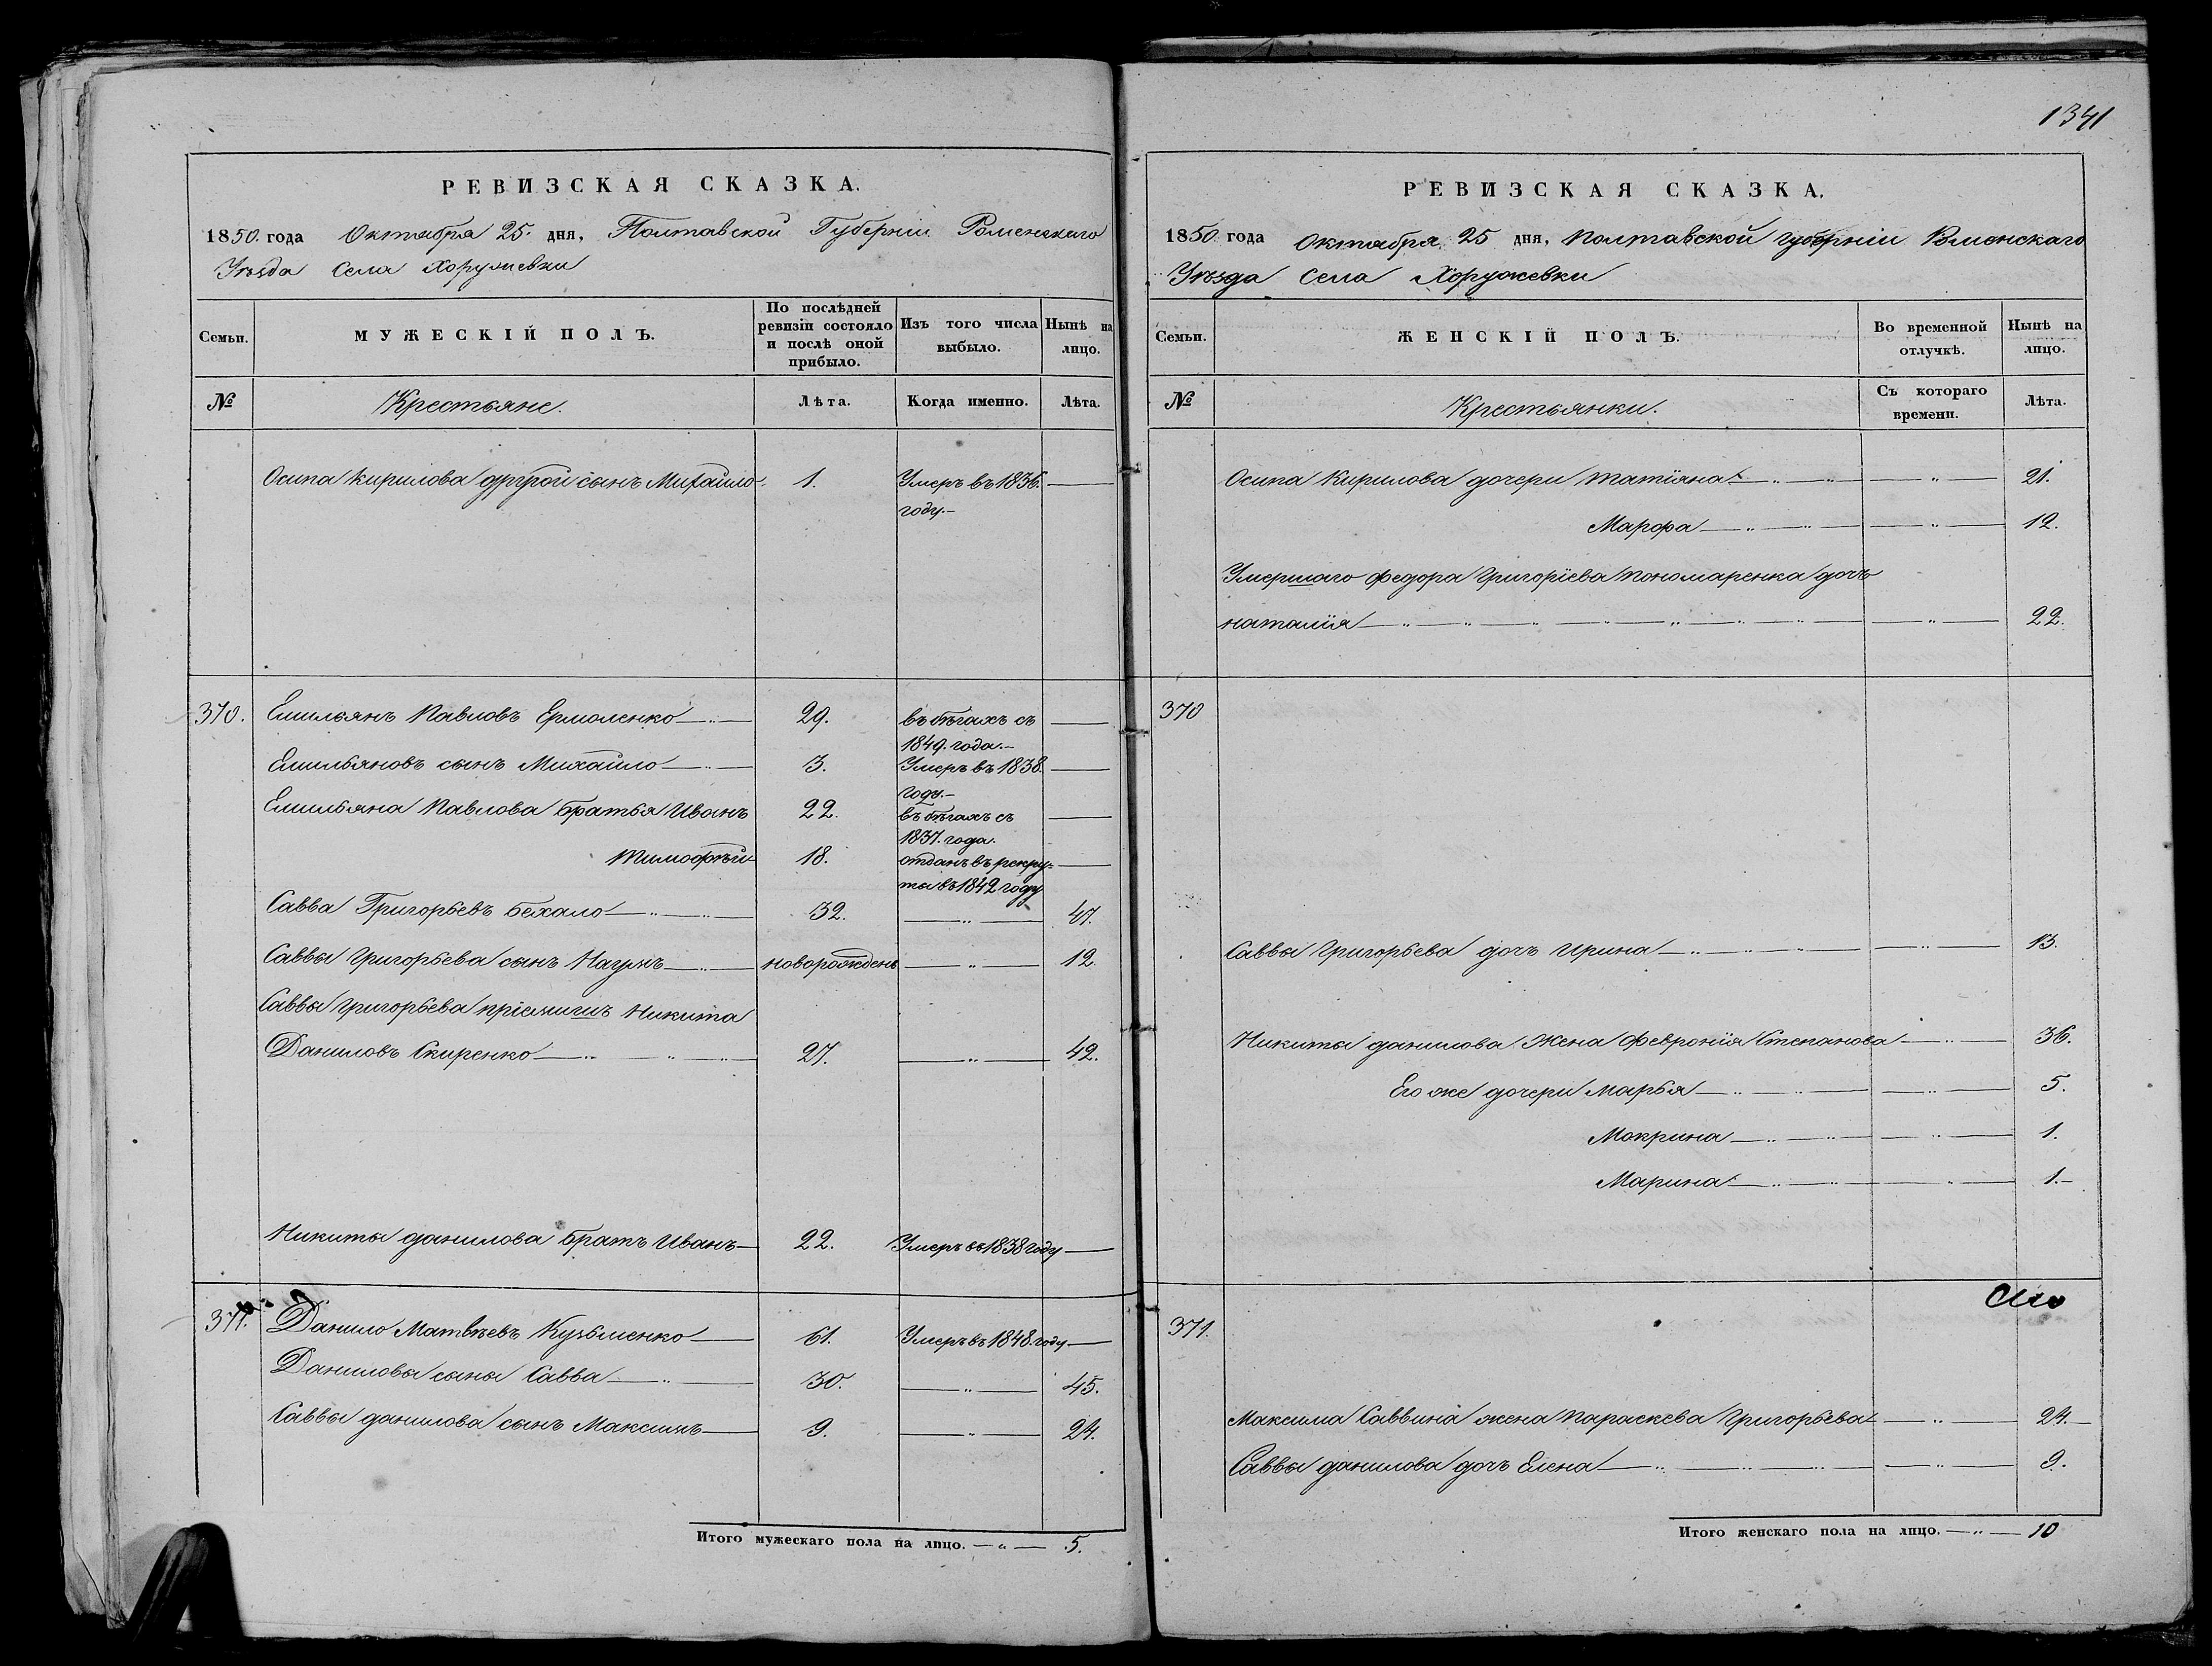 РЕВИЗСКАЯ СКАЗКА.
1850. года Октября 25. дня, Полтавской Губерніи Роменскаго
Уѣзда Села Хоружевки
Семьи.
МУЖЕСКІЙ ПОЛЪ.
По послѣдней ревизіи состояло и послѣ оной прибыло.
Изъ того числа выбыло.
Нынѣ на лицо.
№
Крестьяне.
Лѣта.
Когда именно.
Лѣта.
Осипа Кирилова другой сынъ Михайло 1. Умеръ въ 1836.
году.
370. Емильянъ Павловъ Ермоленко 29. въ бѣгахъ съ
1849. года.
Емильяновъ сынъ Михайло 3. Умеръ въ 1838.
году.
Емильяна Павлова братья Иванъ 22. въ бѣгахъ съ
1837. года.
Тимофѣй 18. отданъ въ рекру-
ты въ 1842 году
Савва Григорьевъ Бехало 32. 47.
Саввы Григорьева сынъ Наумъ новорожденъ 12.
Саввы Григорьева пріемишъ Никита
Даниловъ Скиренко 27. 42.
Никиты Данилова братъ Иванъ 22. Умеръ въ 1838 году
371. Данило Матвѣевъ Кузьменко 61. Умеръ въ 1848. году
Даниловы сыны Савва 30. 45.
Саввы Данилова сынъ Максимъ 9. 24.
Итого мужескаго пола на лицо. 5.
1341
РЕВИЗСКАЯ СКАЗКА.
1850 года Октября 25 дня, Полтавской Губерніи Роменскаго
Уѣзда Села Хоружевки
Семьи.
ЖЕНСКІЙ ПОЛЪ.
Во временной отлучкѣ.
Нынѣ на лицо.
№
Крестьянки.
Съ котораго времени.
Лѣта.
Осипа Кирилова дочери Татіяна 21.
Марфа 12.
Умершаго Федора Григоріева Пономаренка дочь
Наталія 22.
370
Саввы Григорьева дочь Ирина 13.
Никиты Данилова жена Февронія Степанова 36.
Его же дочери Марья 5.
Мокрина 1.
Марина 1.
371.
Максима Саввина жена Параскева Григорьева 24.
Саввы Данилова дочь Елена 9.
Итого женскаго пола на лицо. 10